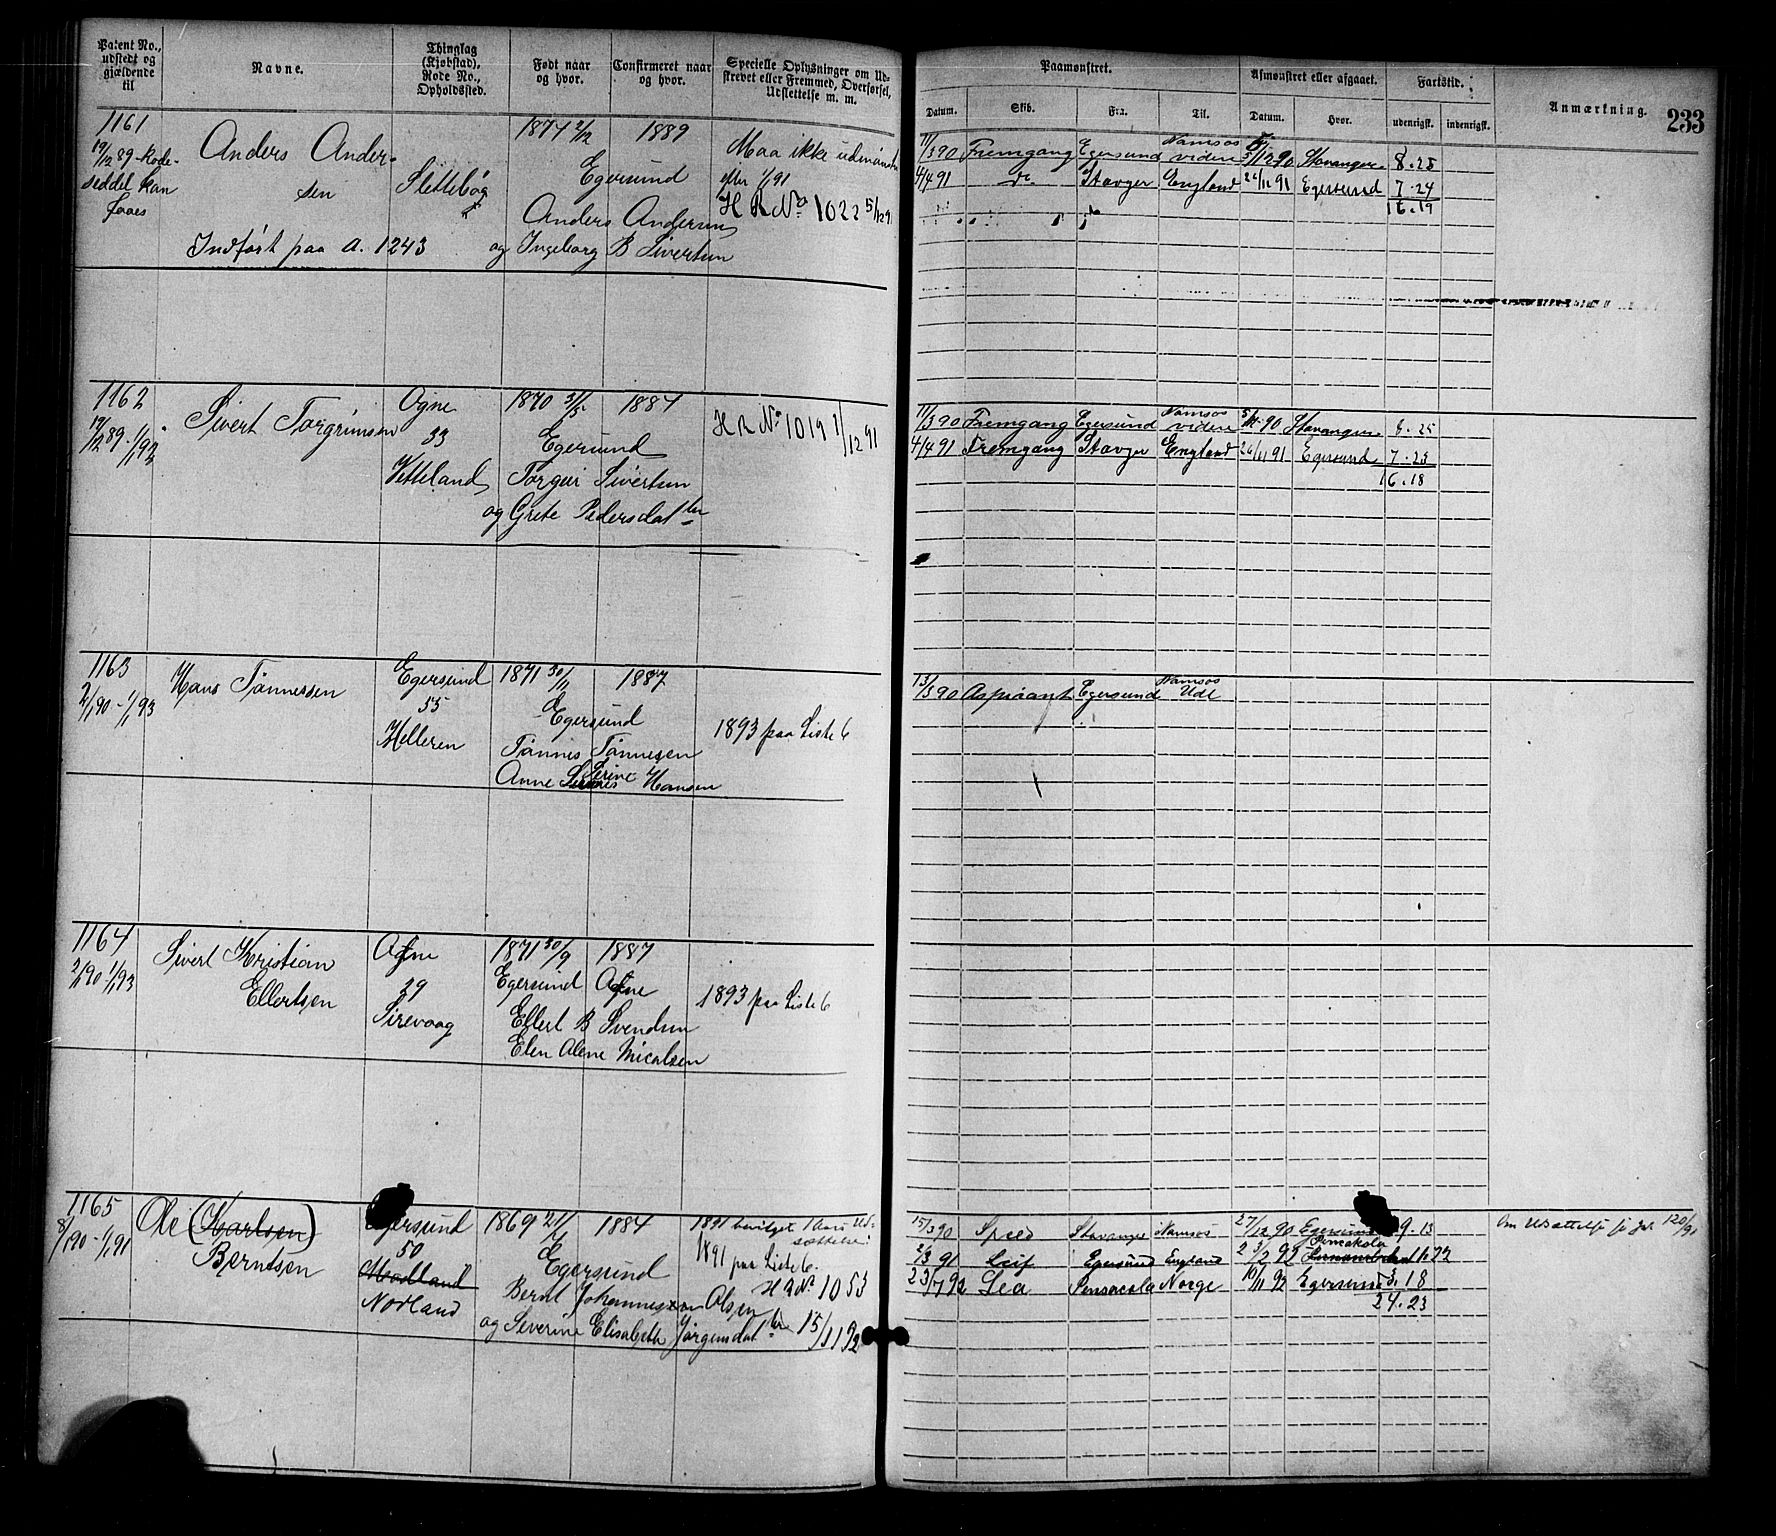 Patent No., udstedt og gjældende til
Navne.
Thinglag (Kjøbstad), Rode No., Opholdssted.
Født naar og hvor.
Confirmeret naar og hvor.
Specielle Oplysninger om Udskrevet eller Fremmed, Overførsel, Udslettelse m. m.
Paamønstret.
Datum.
Skib.
Fra.
Til.
Afmønstret eller afgaaet.
Datum.
Hvor.
Fartstid.
udenrigsk.
indenrigsk.
Anmærkning.
233
1161
19/12 89 - Rode-
seddel kan
faaes
Anders Ander-
sen
Slettebøg
1874 2/12
1889
Egersund
Anders Andersen
og Ingeborg B Sivertsen
Maa ikke udmønstr
efter 1/1 91
H R No 1022 5/12 91
Indført paa A. 1243
11/3 90 Fremgang Egersund Namsos videre 5/12 90 Stavanger 8.25
4/4 91 Do Stavger England 26/11 91 Egersund 7.24
16.19
1162
19/12 89 - 1/1 92
Sivert Torgrimsen
Ogne
33
Vetteland
1870 3/5
1884
Egersund
Torger Sivertsen
og Grete Pedersdatter
H R No 1019 1/12 91
11/3 90 Fremgang Egersund Namsos videre 5/12 90 Stavanger 8.25
4/4 91 Fremgang Stavger England 26/11 91 Egersund 7.23
16.18
1163
2/1 90 - 1/1 93
Hans Tønnessen
Egersund
55
Helleren
1871 30/11
1887
Egersund
Tønnes Tønnesen
Anne Serine Hansen
1893 paa Liste 6
13/3 90 Aspirant Egersund Namsos Udl
1164
2/1 90 1/1 93
Sivert Kristian
Ellertsen
Ogne
29
Sirevaag
1871 30/9
1887
Egersund Ogne
Ellert B Svendsen
Elen Alene Micalsen
1893 paa Liste 6
1165
8/1 90 - 1/1 91
Ole (Karlsen)
Berntsen
Egersund
50
Madland
Norland
1869 21/1
1884
Egersund
Bernt Johannessen Olsen
og Severine Elisabeth Jørgensdatter
1891 bevilget 1 Aars Ud-
sættelse
1891 paa Liste 6.
H R No 1053
15/11 92
15/3 90 Speed Stavanger Namsos 27/12 90 Egersund 9.13
2/3 91 Leif Egersund England 23/2 92 Pensakola 11.22
23/7 92 Lea Pensacola Norge 10/11 92 Egersund 3.18
24.23
Om Udsættelse se Jol 120/91